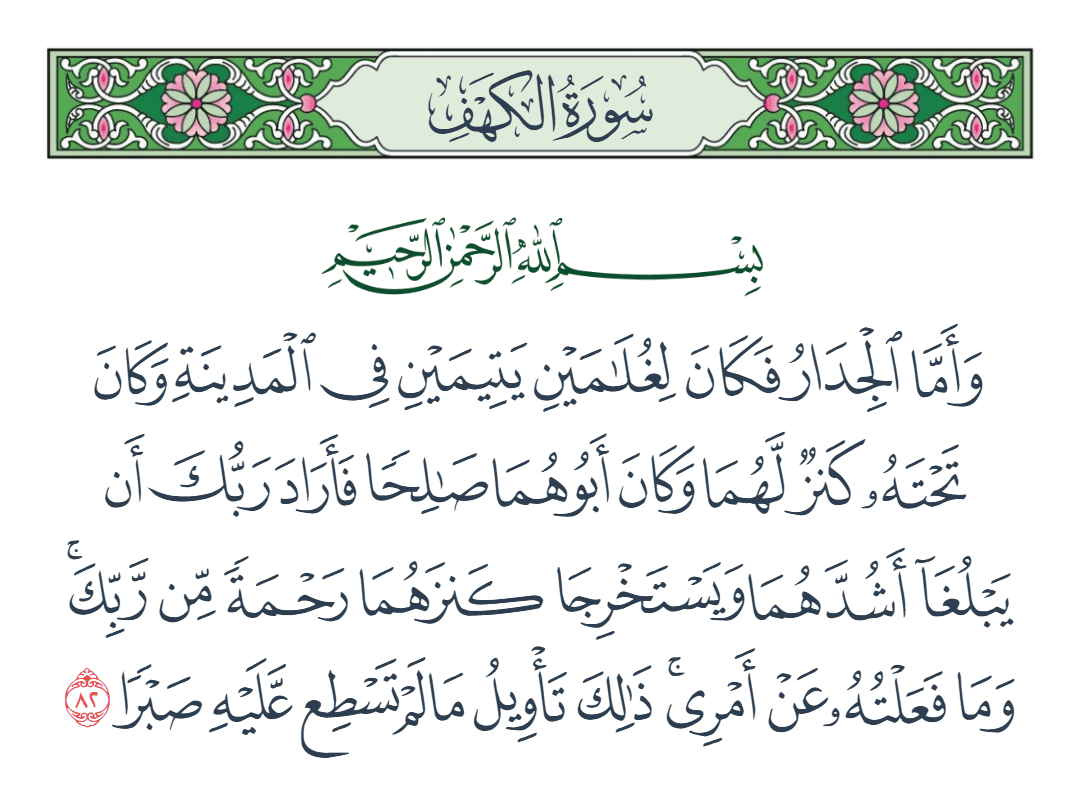 سُورَةُ الكَهْفِ
بِسْمِ ٱللَّهِ ٱلرَّحْمَٰنِ ٱلرَّحِيمِ
وَأَمَّا ٱلْجِدَارُ فَكَانَ لِغُلَٰمَيْنِ يَتِيمَيْنِ فِى ٱلْمَدِينَةِ وَكَانَ
تَحْتَهُۥ كَنزٌ لَّهُمَا وَكَانَ أَبُوهُمَا صَٰلِحًا فَأَرَادَ رَبُّكَ أَن
يَبْلُغَآ أَشُدَّهُمَا وَيَسْتَخْرِجَا كَنزَهُمَا رَحْمَةً مِّن رَّبِّكَ ۚ
وَمَا فَعَلْتُهُۥ عَنْ أَمْرِى ۚ ذَٰلِكَ تَأْوِيلُ مَا لَمْ تَسْطِع عَّلَيْهِ صَبْرًا ٨٢